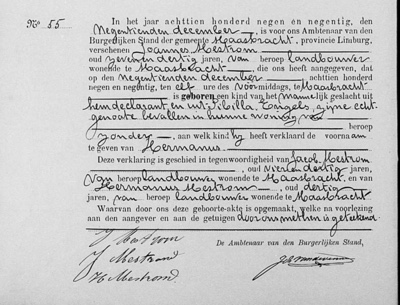 No. 55
In het jaar achttien honderd negen en negentig, den
negentienden december, is voor ons Ambtenaar van den
Burgerlijken Stand der gemeente Maasbracht, provincie Limburg,
verschenen Joannes Mestrom
oud zeven en dertig jaren, van beroep landbouwer
wonende te Maasbracht die ons heeft aangegeven, dat
op den negentienden december achttien honderd
negen en negentig, ten elf ure des voormiddags, te Maasbracht
is geboren een kind van het mannelijk geslacht uit
hem declarant en uit Sibilla, zijne echt-
genoote bevallen in hunne woning van
beroep
zonder, aan welk kind hij heeft verklaard de voornaam
te geven van Hermanus
Deze verklaring is geschied in tegenwoordigheid van Jacob Mestrom
oud vier en dertig jaren,
van beroep landbouwer wonende te Maasbracht, en van
Hermanus Mestrom, oud dertig
jaren, van beroep landbouwer wonende te Maasbracht
Waarvan door ons deze geboorte-akte is opgemaakt, welke na voorlezing
aan den aangever en aan de getuigen door ons met hen is geteekend.
De Ambtenaar van den Burgerlijken Stand,
J Mestrom
J Mestrom
H Mestrom